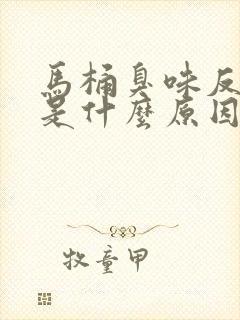 馬桶臭味反
是什麼原因
牧童甲